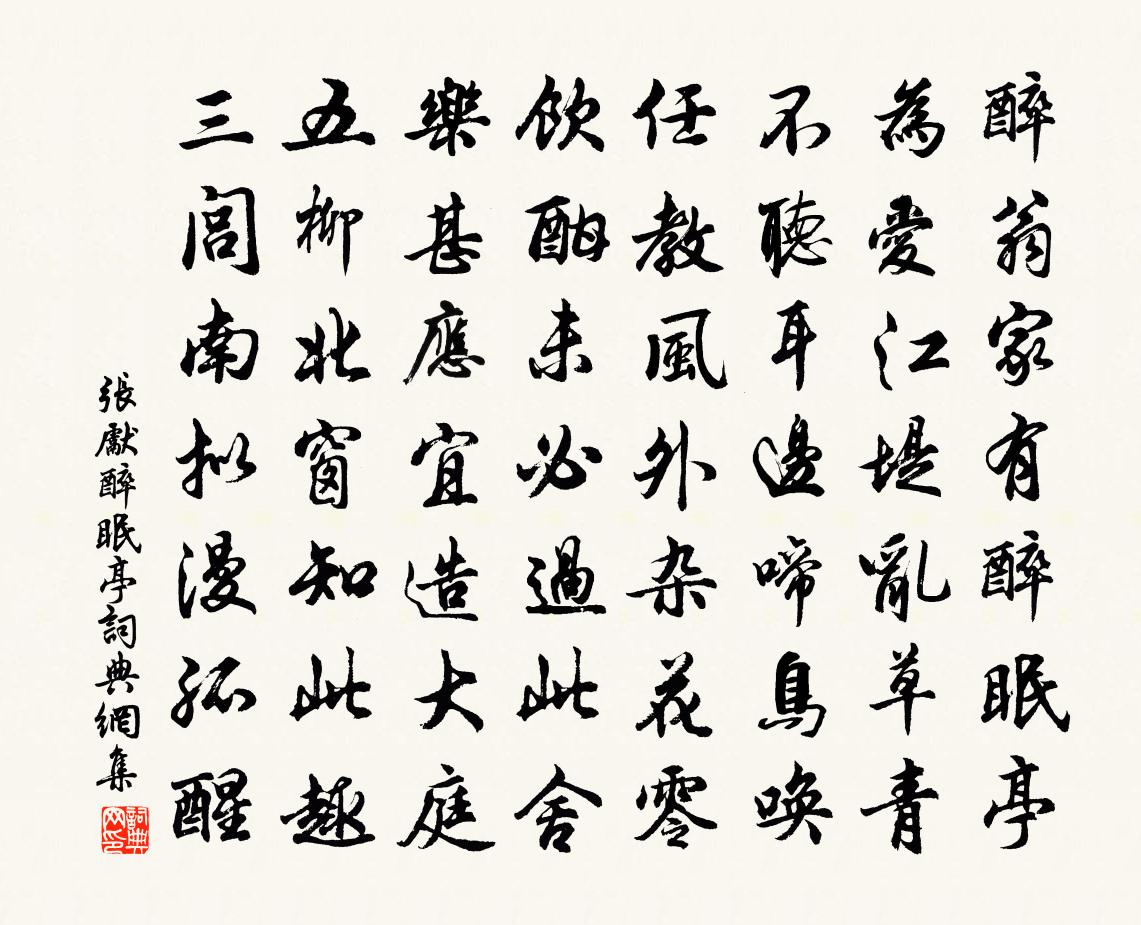 醉翁家有醉眠亭
為愛江堤亂草青
不聽耳邊啼鳥喚
任教風外杂花零
飲酣未必過此舍
樂甚應宜造大庭
五柳北窗知此趣
三閭南拟漫孤醒
張獻醉眠亭詞典網集
詞典网印